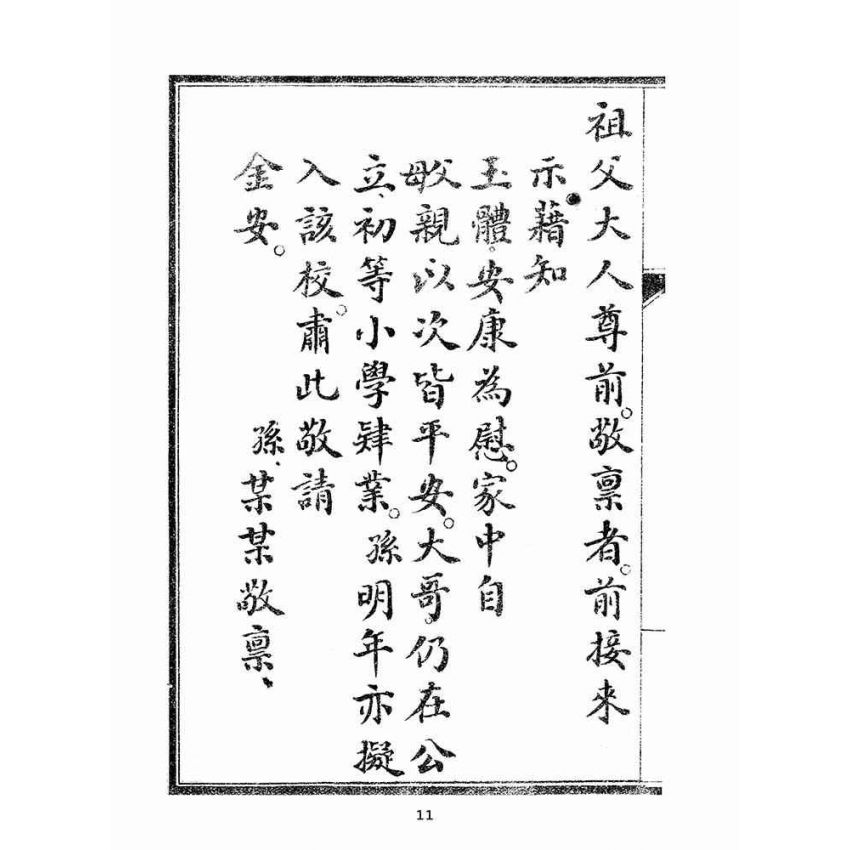 祖父大人尊前。敬稟者。前接來
示。藉知
玉體。安康為慰。家中自
父母親以次皆平安。大哥仍在公
立、初等小學肄業。孫明年亦擬
入該校。肅此敬請
金安。
孫、某某敬稟、
11